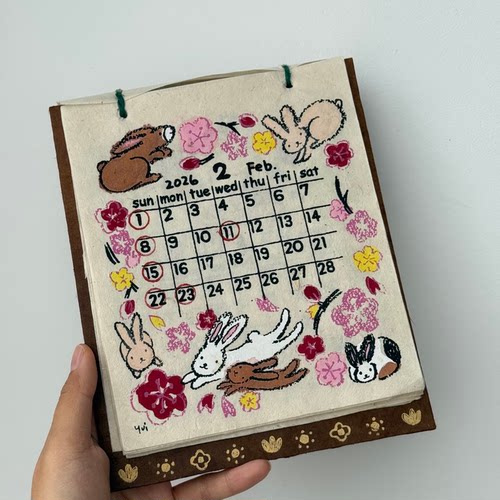 2026 2 Feb.
sun mon tue wed thu fri sat
1 2 3 4 5 6 7
8 9 10 11 12 13 14
15 16 17 18 19 20 21
22 23 24 25 26 27 28
yui